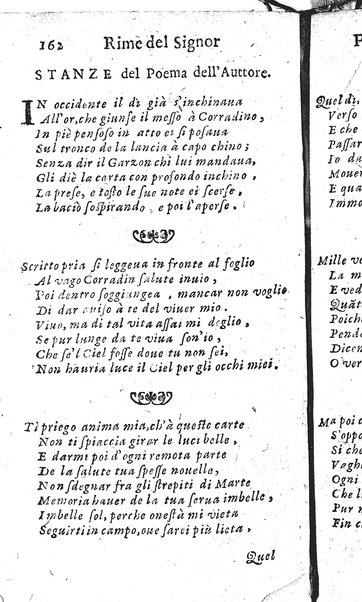 162 Rime del Signor
STANZE del Poema dell'Auttore.
IN occidente il dì già s'inchinaua
All'or, che giunse il messo à Corradino,
In piè pensoso in atto ei si posaua
Sul tronco de la lancia à capo chino;
Senza dir il Garzon chi lui mandaua,
Gli diè la carta con profondo inchino,
La prese, e tosto le sue note ei scerse,
La baciò sospirando, e poi l'aperse.
Scritto pria si leggeua in fronte al foglio
Al vago Corradin salute inuio,
Poi dentro soggiungea, mancar non voglio
Di dar auiso à te del viuer mio.
Viuo, ma di tal vita assai mi doglio,
Se pur lunge da te viua son'io,
Che s'el Ciel fosse doue tu non sei,
Non hauria luce il Ciel per gli occhi miei.
Ti priego anima mia, ch'à queste carte
Non ti spiaccia girar le luci belle,
E darmi poi d'ogni remota parte
De la salute tua spesse nouelle,
Non sdegnar fra gli strepiti di Marte
Memoria hauer de la tua serua imbelle,
Imbelle sol, perche onestà mi vieta
Seguirti in campo, oue sarei più lieta,
Quel
Quel dì,
Verso
E che
Passar
Io da
Mouer
E qua
Immo
Mille vo
Ma n
E ved
Quãt
Poich
Pende
Dicen
O ver
Ma poi c
S'oppo
Si che
Vagh
Ogni
Che l
Pur n
Fin c